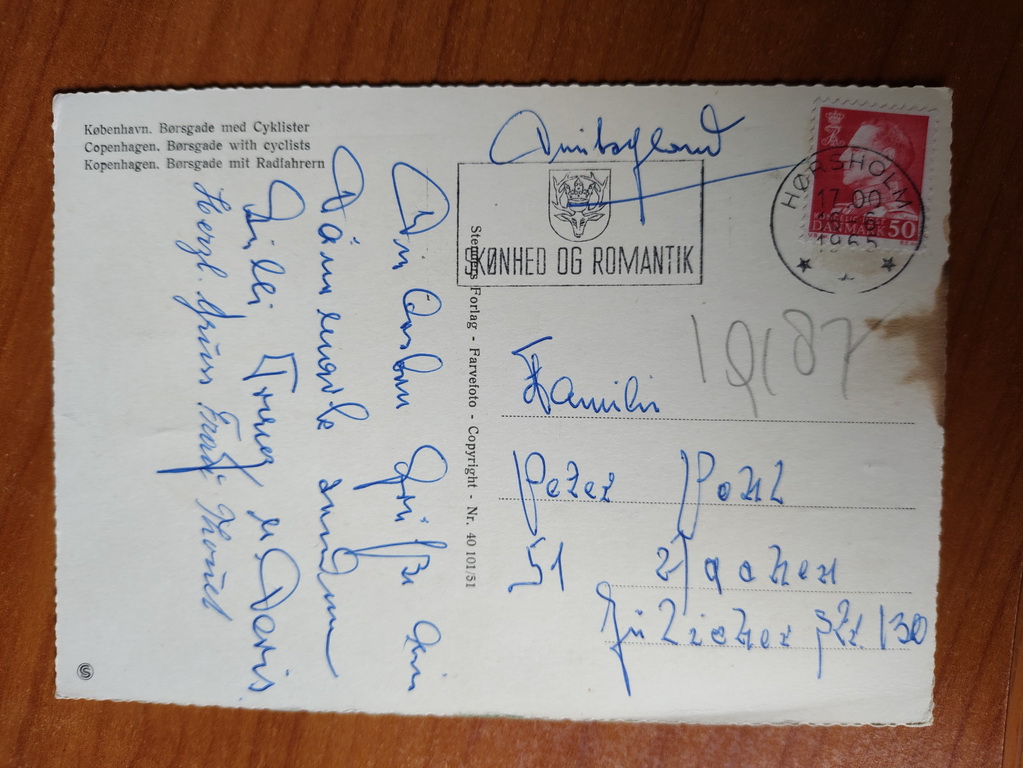 København. Børsgade med Cyklister
Copenhagen. Børsgade with cyclists
Kopenhagen. Børsgade mit Radfahrern
Stenders Forlag - Farvefoto - Copyright - Nr. 40 101/51
SKØNHED OG ROMANTIK
HØRSHOLM
17.00
1965
DANMARK 50
Grüße
Dänemark senden
Willi u Doris
Herzl. Gruss
Familie
Peter Pohl
51 Aachen
Jülicher Str. 130